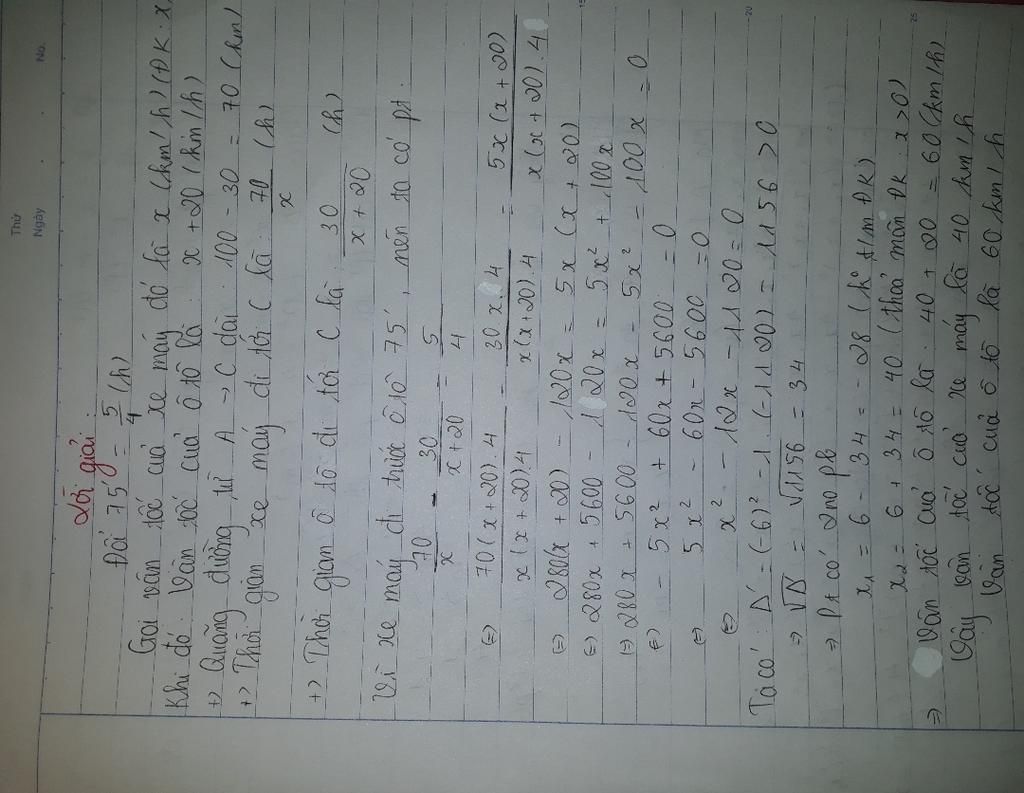 Thứ
Ngày No.
Lời giải:
Đổi 75' = 5/4 (h)
Gọi vận tốc của xe máy đó là x (km/h) (ĐK: x
Khi đó: Vận tốc của ô tô là: x + 20 (km/h)
+) Quãng đường từ A → C dài: 100 - 30 = 70 (km)
+) Thời gian xe máy đi tới C là: 70/x (h)
+) Thời gian ô tô đi tới C là: 30/(x + 20) (h)
Vì xe máy đi trước ô tô 75', nên ta có pt:
70/x - 30/(x + 20) = 5/4
(=) 70(x + 20).4/x(x + 20).4 - 30x.4/x(x + 20).4 = 5x(x + 20)/x(x + 20).4
(=) 280(x + 20) - 120x = 5x(x + 20)
(=) 280x + 5600 - 120x = 5x² + 100x
(=) 280x + 5600 - 120x - 5x² - 100x = 0
(=) - 5x² + 60x + 5600 = 0
(=) 5x² - 60x - 5600 = 0
(=) x² - 12x - 1120 = 0
Ta có: Δ' = (-6)² - 1.(-1120) = 1156 > 0
⇒ √Δ' = √1156 = 34
⇒ Pt có 2no pb
x₁ = 6 - 34 = -28 (ko t/m ĐK)
x₂ = 6 + 34 = 40 (thoả mãn ĐK x > 0)
⇒ Vận tốc của ô tô là: 40 + 20 = 60 (km/h)
Vậy vận tốc của xe máy là 40 km/h
Vận tốc của ô tô là 60 km/h
15
20
25